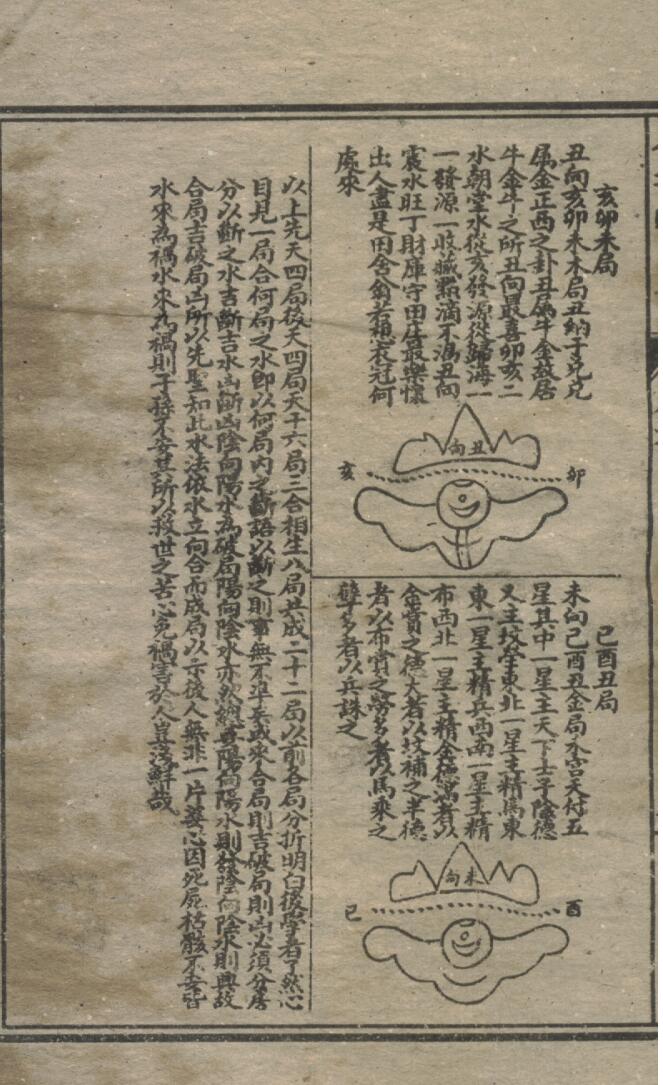 亥卯未局
丑向亥卯未木局丑納于兌兌
屬金正西之卦丑屬牛金故居
牛金牛之所丑向最喜卯亥二
水朝堂水從亥發源從歸海一
一發源一收藏點滴不漏丑向
震水旺丁財庫守田庄最樂懷
出人盡是田舍翁若想衣冠何
處來
丑向
亥
卯
巳酉丑局
未向巳酉丑金局水宮天付五
星其中一星主天下士子陰德
又主坟塋東北一星主精馬東
東一星主精兵西南一星主精
布西北一星主精金德萬者以
金賞之德大者以坟補之半德
者以布賞之勞多者以馬乘之
孽多者以兵誅之
未向
巳
酉
以上先天四局後天四局天干六局三合相生八局共成二十二局以前各局分折明白後學者了然心
目見一局合何局之水即以何局內之斷語以斷之則事無不準矣或來合局則吉破局則凶必須分房
分以斷之水吉斷吉水凶斷凶陰向陽水為破局陽向陰水亦然總要陽向陽水則發陰向陰水則興故
合局吉破局凶所以先聖知此水法依水立向合而成局以示後人無非一片婆心因死屍枯骸不幸皆
水來為禍水來為禍則子孫不安其所以救世之苦心免禍害於人豈淺鮮哉